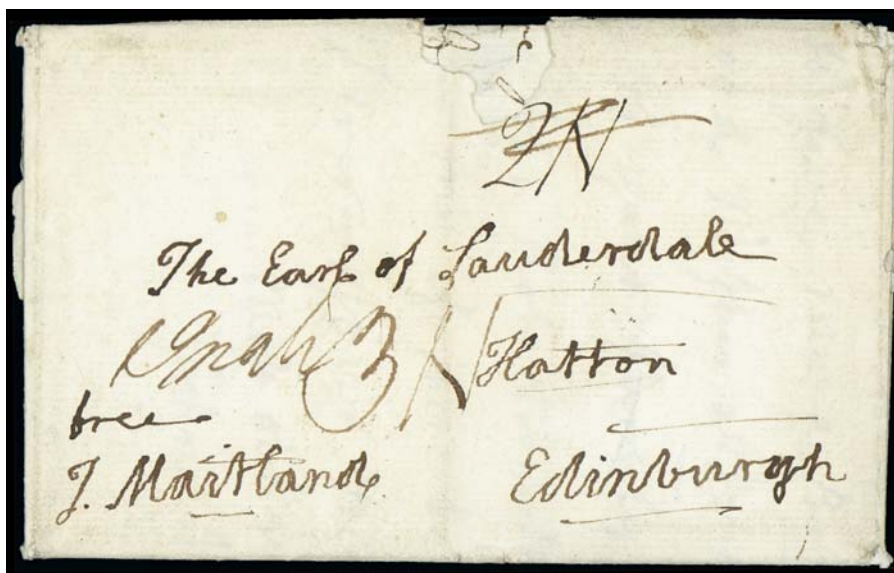 2N
The Earl of Lauderdale
3N Hatton
free
J. Maitland Edinburgh